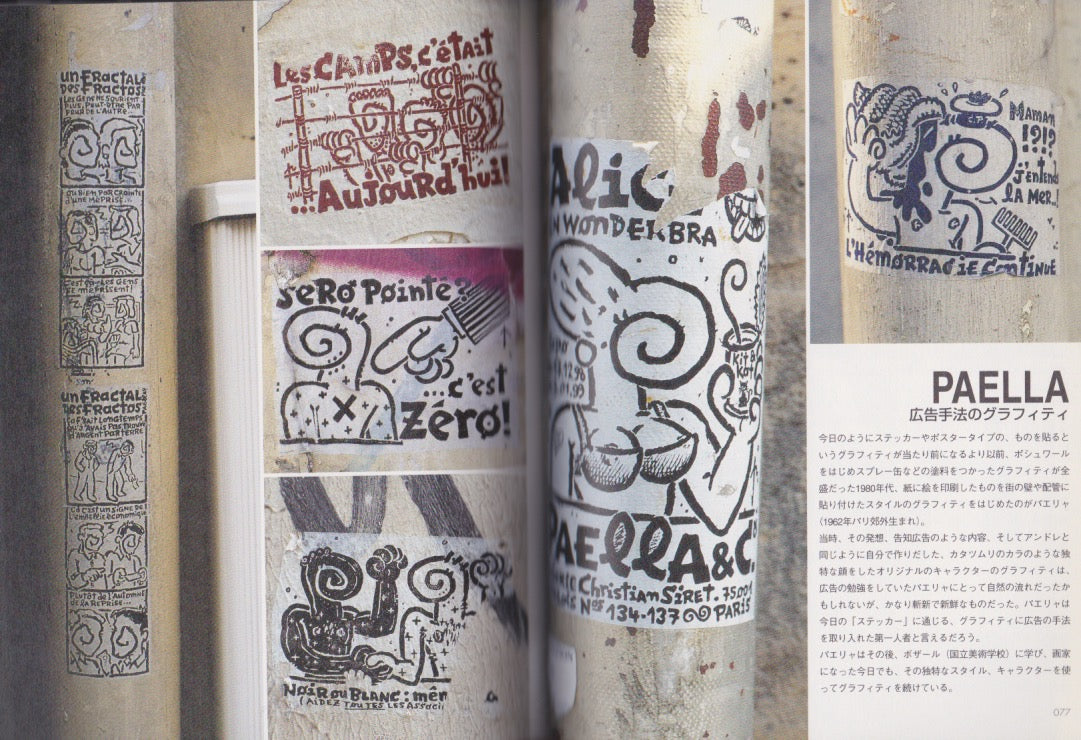 un FRACTALE
DES FRACTOS!
Les Gens ne sourient
plus, Peut-être PAR
Peur De L'AUTRE...
Ou Bien PAR CRAINTE
d'une MéPRise...
C'est ça: Les Gens
se méprisent!
un FRACTALE
Des FRACTOS!
ça Fait Longtemps
qu'J'Avais PAS TROUVÉ
d'ARGENT PAR TERRE
ça c'est un SIGNE DE
L'embellie économique
Plutôt de l'Automne
Les CAMPS, c'était
...AuJouRd'hui!
ZéRo Pointé?
...c'est
Zéro!
NoiR ou BLANC: mêm
(AIDEZ TOUTES LES Associ
Alic
N WONDERBRA
Kit &
Kat
PAELLA & C
Christian SiRet. 75001
Nos 134-137 PARIS
MAMAN
!?!?
J'entends
la MeR..!
L'HémoRRAGie Continue
PAELLA
広告手法のグラフィティ
今日のようにステッカーやポスタータイプの、ものを貼ると
いうグラフィティが当たり前になるより以前、ポショワール
をはじめスプレー缶などの塗料をつかったグラフィティが全
盛だった1980年代、紙に絵を印刷したものを街の壁や配管に
貼り付けたスタイルのグラフィティをはじめたのがパエリャ
(1962年パリ郊外生まれ)。
当時、その発想、告知広告のような内容、そしてアンドレと
同じように自分で作りだした、カタツムリのカラのような独
特な顔をしたオリジナルのキャラクターのグラフィティは、
広告の勉強をしていたパエリャにとって自然の流れだったか
もしれないが、かなり斬新で新鮮なものだった。パエリャは
今日の「ステッカー」に通じる、グラフィティに広告の手法
を取り入れた第一人者と言えるだろう。
パエリャはその後、ボザール(国立美術学校)に学び、画家
になった今日でも、その独特なスタイル、キャラクターを使
ってグラフィティを続けている。
077